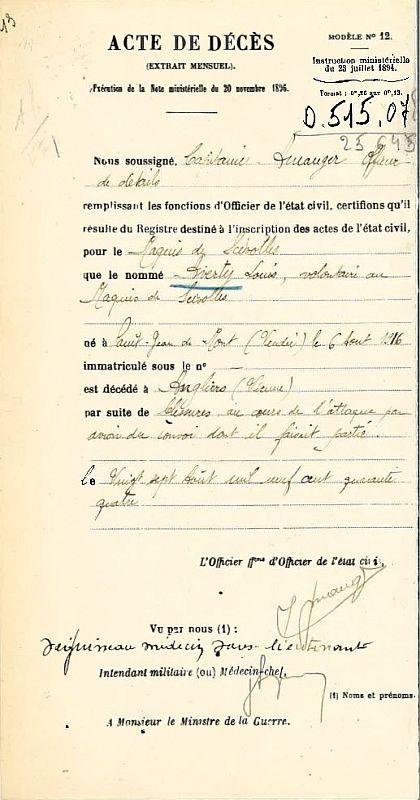 ACTE DE DÉCÈS
(EXTRAIT MENSUEL).
Exécution de la Note ministérielle du 20 novembre 1896.
MODÈLE No 12.
Instruction ministérielle
du 23 juillet 1894.
Format : 0m,26 sur 0m,13.
D.515,07
25643
Nous soussigné, Capitaine Officier
de détails
remplissant les fonctions d'Officier de l'état civil, certifions qu'il
résulte du Registre destiné à l'inscription des actes de l'état civil,
pour le Maquis de Scévolles
que le nommé Averty Louis, volontaire au
Maquis de Scévolles
né à Saint-Jean de Mont (Vendée) le 6 Aout 1916
immatriculé sous le no —
est décédé à Angliers (Vienne)
par suite de blessures au cours de l'attaque par
avion du convoi dont il faisait partie.
Le Vingt sept Août mil neuf cent quarante
quatre
L'Officier ffons d'Officier de l'état civil,
Vu par nous (1) :
médecin sous-lieutenant
Intendant militaire (ou) Médecin-chef.
(1) Noms et prénoms.
A Monsieur le Ministre de la Guerre.